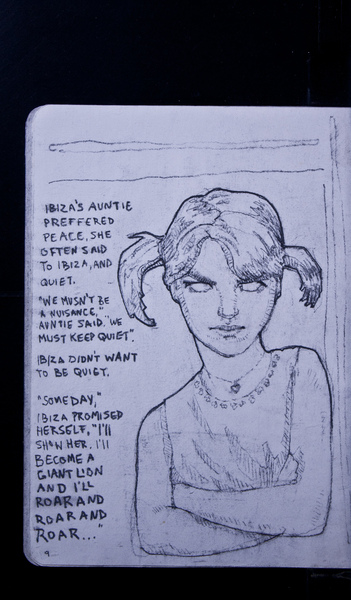 IBIZA'S AUNTIE
PREFFERED
PEACE, SHE
OFTEN SAID
TO IBIZA, AND
QUIET.
"WE MUSN'T BE
A NUISANCE,"
AUNTIE SAID. "WE
MUST KEEP QUIET".
IBIZA DIDN'T WANT
TO BE QUIET.
"SOMEDAY,"
IBIZA PROMISED
HERSELF, "I'll
SHOW HER. I'll
BECOME A
GIANT LION
AND I'LL
ROAR AND
ROAR AND
ROAR..."
9...